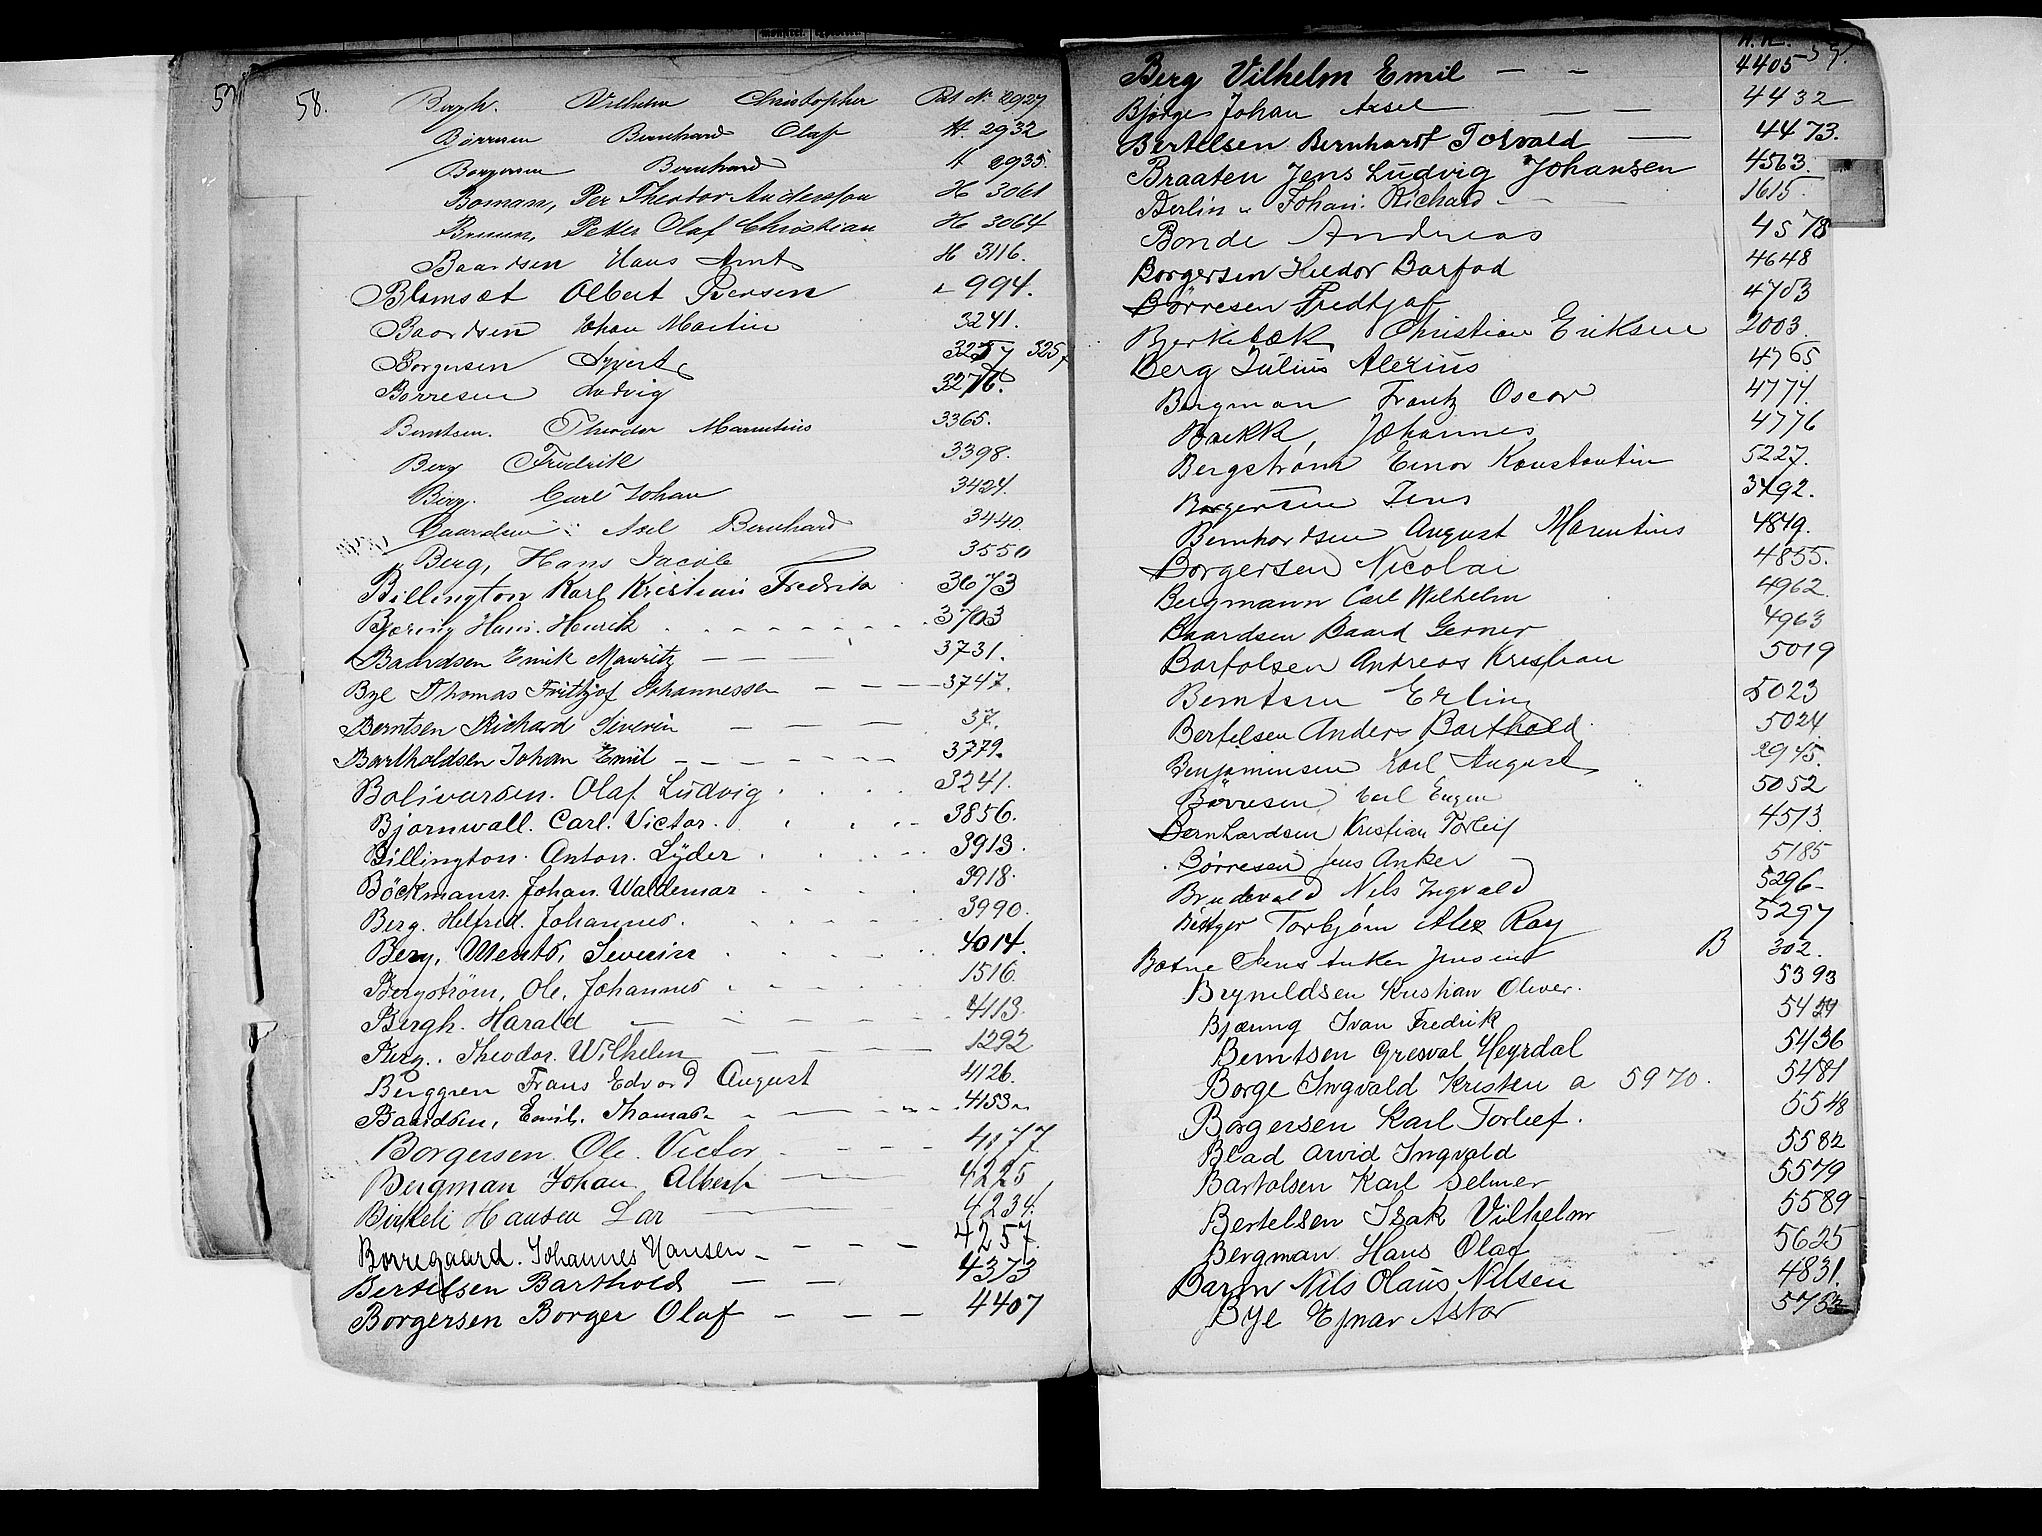 58.
Bergh. Wilhelm Christopher Pat N. 2927
Børresen Bernhard Olaf H. 2932
Borgersen Bernhard 2935.
Boman, Per Theodor Andersson H 3061
Bruun, Petter Olaf Christian H 3064
Baardsen Hans Arnt H 3116.
Blomset Olbert Iversen 994.
Baardsen Johan Martin 3241.
Borgersen 3257 3257
Borresen Ludvig 3276.
Berntsen. Theodor Marentius 3365.
Berg Fredrik 3398.
Berg. Carl Johan 3424.
Baardsen Axel Bernhard 3440.
Berg, Hans Jacob 3550
Billington Karl Kristian Fredrik 3673
Bjøring Hans. Henrik 3703
Baardsen Emik Mauritz 3731.
Bye Thomas Frithjof Johannessen 3747.
Berntsen Richard Severin 37.
Bartholdsen Johan Emil 3779.
Bolivarsen. Olaf Ludvig 3241.
Bjørnwall. Carl. Victor. 3856.
Billington. Anton. Lyder 3913.
Böckmann. Johan. Waldemar 3918.
Berg. Helfred. Johannes. 3990.
Berg, Mentø, Severin 4014.
Bergstrøm, Ole, Johannes 1516.
Bergh. Harald 4113.
Berg. Theodor. Wilhelm 1292
Berggren Frans Edvard August 4126.
Baardsen, Emil. Thomas 4153.
Borgersen. Ole. Victor 4177.
Bergman Johan Albert 4225
Birkeli Hansen Lar 4234.
Borregaard. Johannes Hansen 4257.
Bertelsen Barthold 4373
Borgersen Borger Olaf 4407
59.
Berg Vilhelm Emil 4405
Bjørge Johan Axsel 4432
Bertelsen Bernhardt Torvald 4473.
Braaten Jens Ludvig Johansen 4563.
Berlin Johan. Richard 1615.
Bonde Andreas 4578
Borgersen Hildor Barfod 4648
Børresen Fredtjof 4703
Berkebæk Christian Eriksen 2003.
Berg Julius Alexius 4765
Bergman Frantz Oscar 4774.
Bækk, Johannes 4776
Bergstrøm Einar Konstantin 5227.
Borgersen Jens 3492.
Bernhardsen August Marentius 4849.
Borgersen Nicolai 4855.
Bergmann Carl Wilhelm 4962.
Baardsen Baard Gerner 4963
Bartolsen Andreas Kristian 5019
Berntsen Erling 5023
Bertelsen Anders Barthold. 5024.
Benjaminsen Karl August 2945.
Børresen Carl Eugen 5052
Bernhardsen Kristian Torleif 4513.
Børresen Jens Anker 5185
Brudevold Nils Ingvald 5296
Torbjørn Alex Ray 5297
Jens Anker Jensen B 302.
Brynildsen Kristian Oliver. 5393
Bjæring Ivar Fredrik 5424
Berntsen Gresval Heyrdal 5436
Borge Ingvald Kristen a 5970. 5481
Borgersen Karl Torleif. 5548
Blad Arvid Ingvald 5582
Bartolsen Karl Selmer 5579
Bertelsen Isak Vilhelm 5589
Bergman Hans Olaf 5625
Barm Nils Olaus Nilsen 4831.
Bye Ejnar Astor 5753